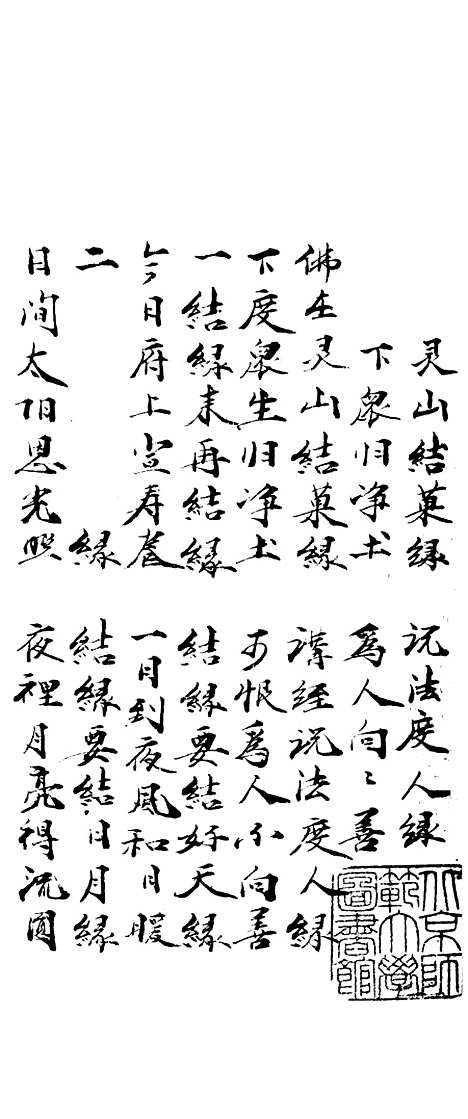 灵山结菓缘 説法度人缘
下眾归净土 爲人向〻善
佛在灵山结菓缘 講经説法度人缘
下度眾生归净土 可恨爲人不向善
一结缘来再结缘 结缘要结好天缘
今日府上宣寿卷 一日到夜風和日暖
二缘 结缘要结日月缘
日间太阳恩光照 夜裡月亮得流圓
北京師
範大學
圖書館